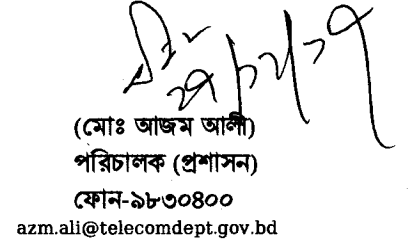 (মোঃ আজম আলী)
পরিচালক (প্রশাসন)
ফোন-৯৮৩০৪০০
azm.ali@telecomdept.gov.bd